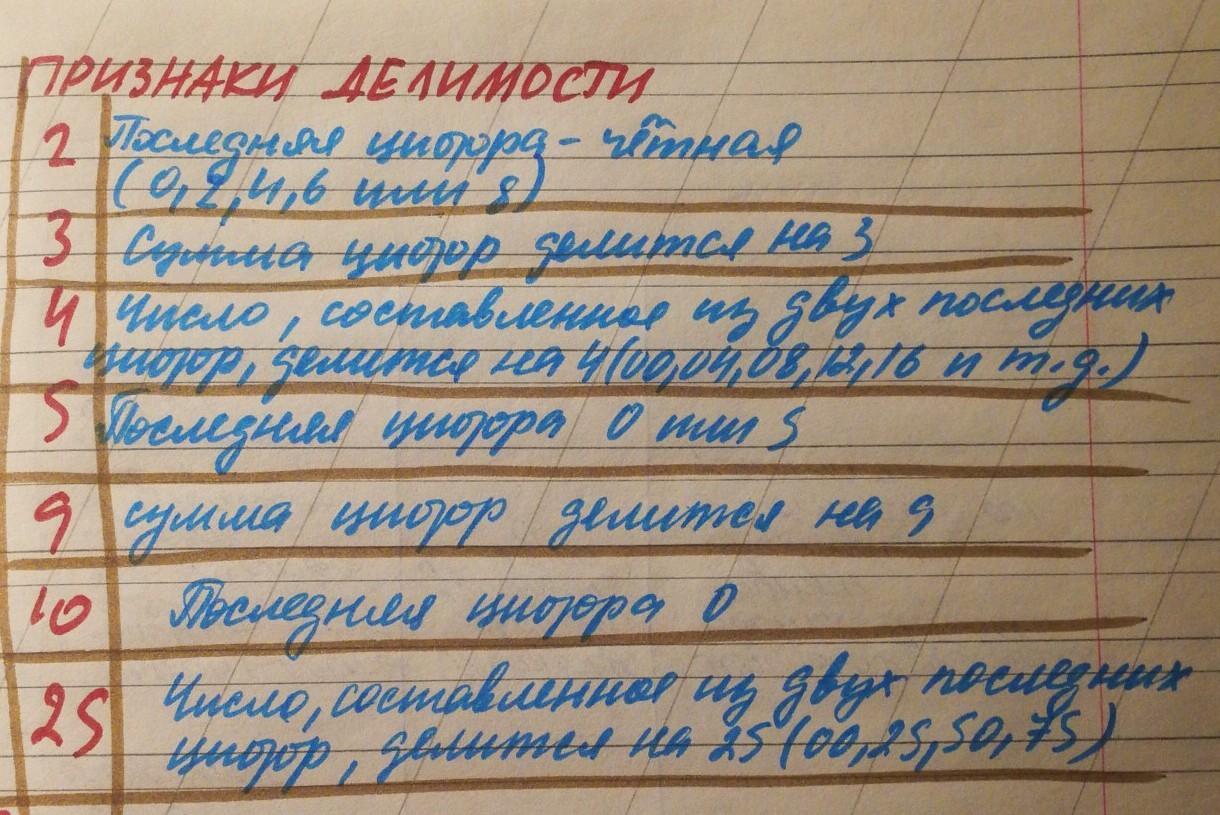 ПРИЗНАКИ ДЕЛИМОСТИ
2 Последняя цифра – чётная
(0, 2, 4, 6 или 8)
3 Сумма цифр делится на 3
4 Число, составленное из двух последних
цифр, делится на 4 (00, 04, 08, 12, 16 и т.д.)
5 Последняя цифра 0 или 5
9 сумма цифр делится на 9
10 Последняя цифра 0
25 Число, составленное из двух последних
цифр, делится на 25 (00, 25, 50, 75)